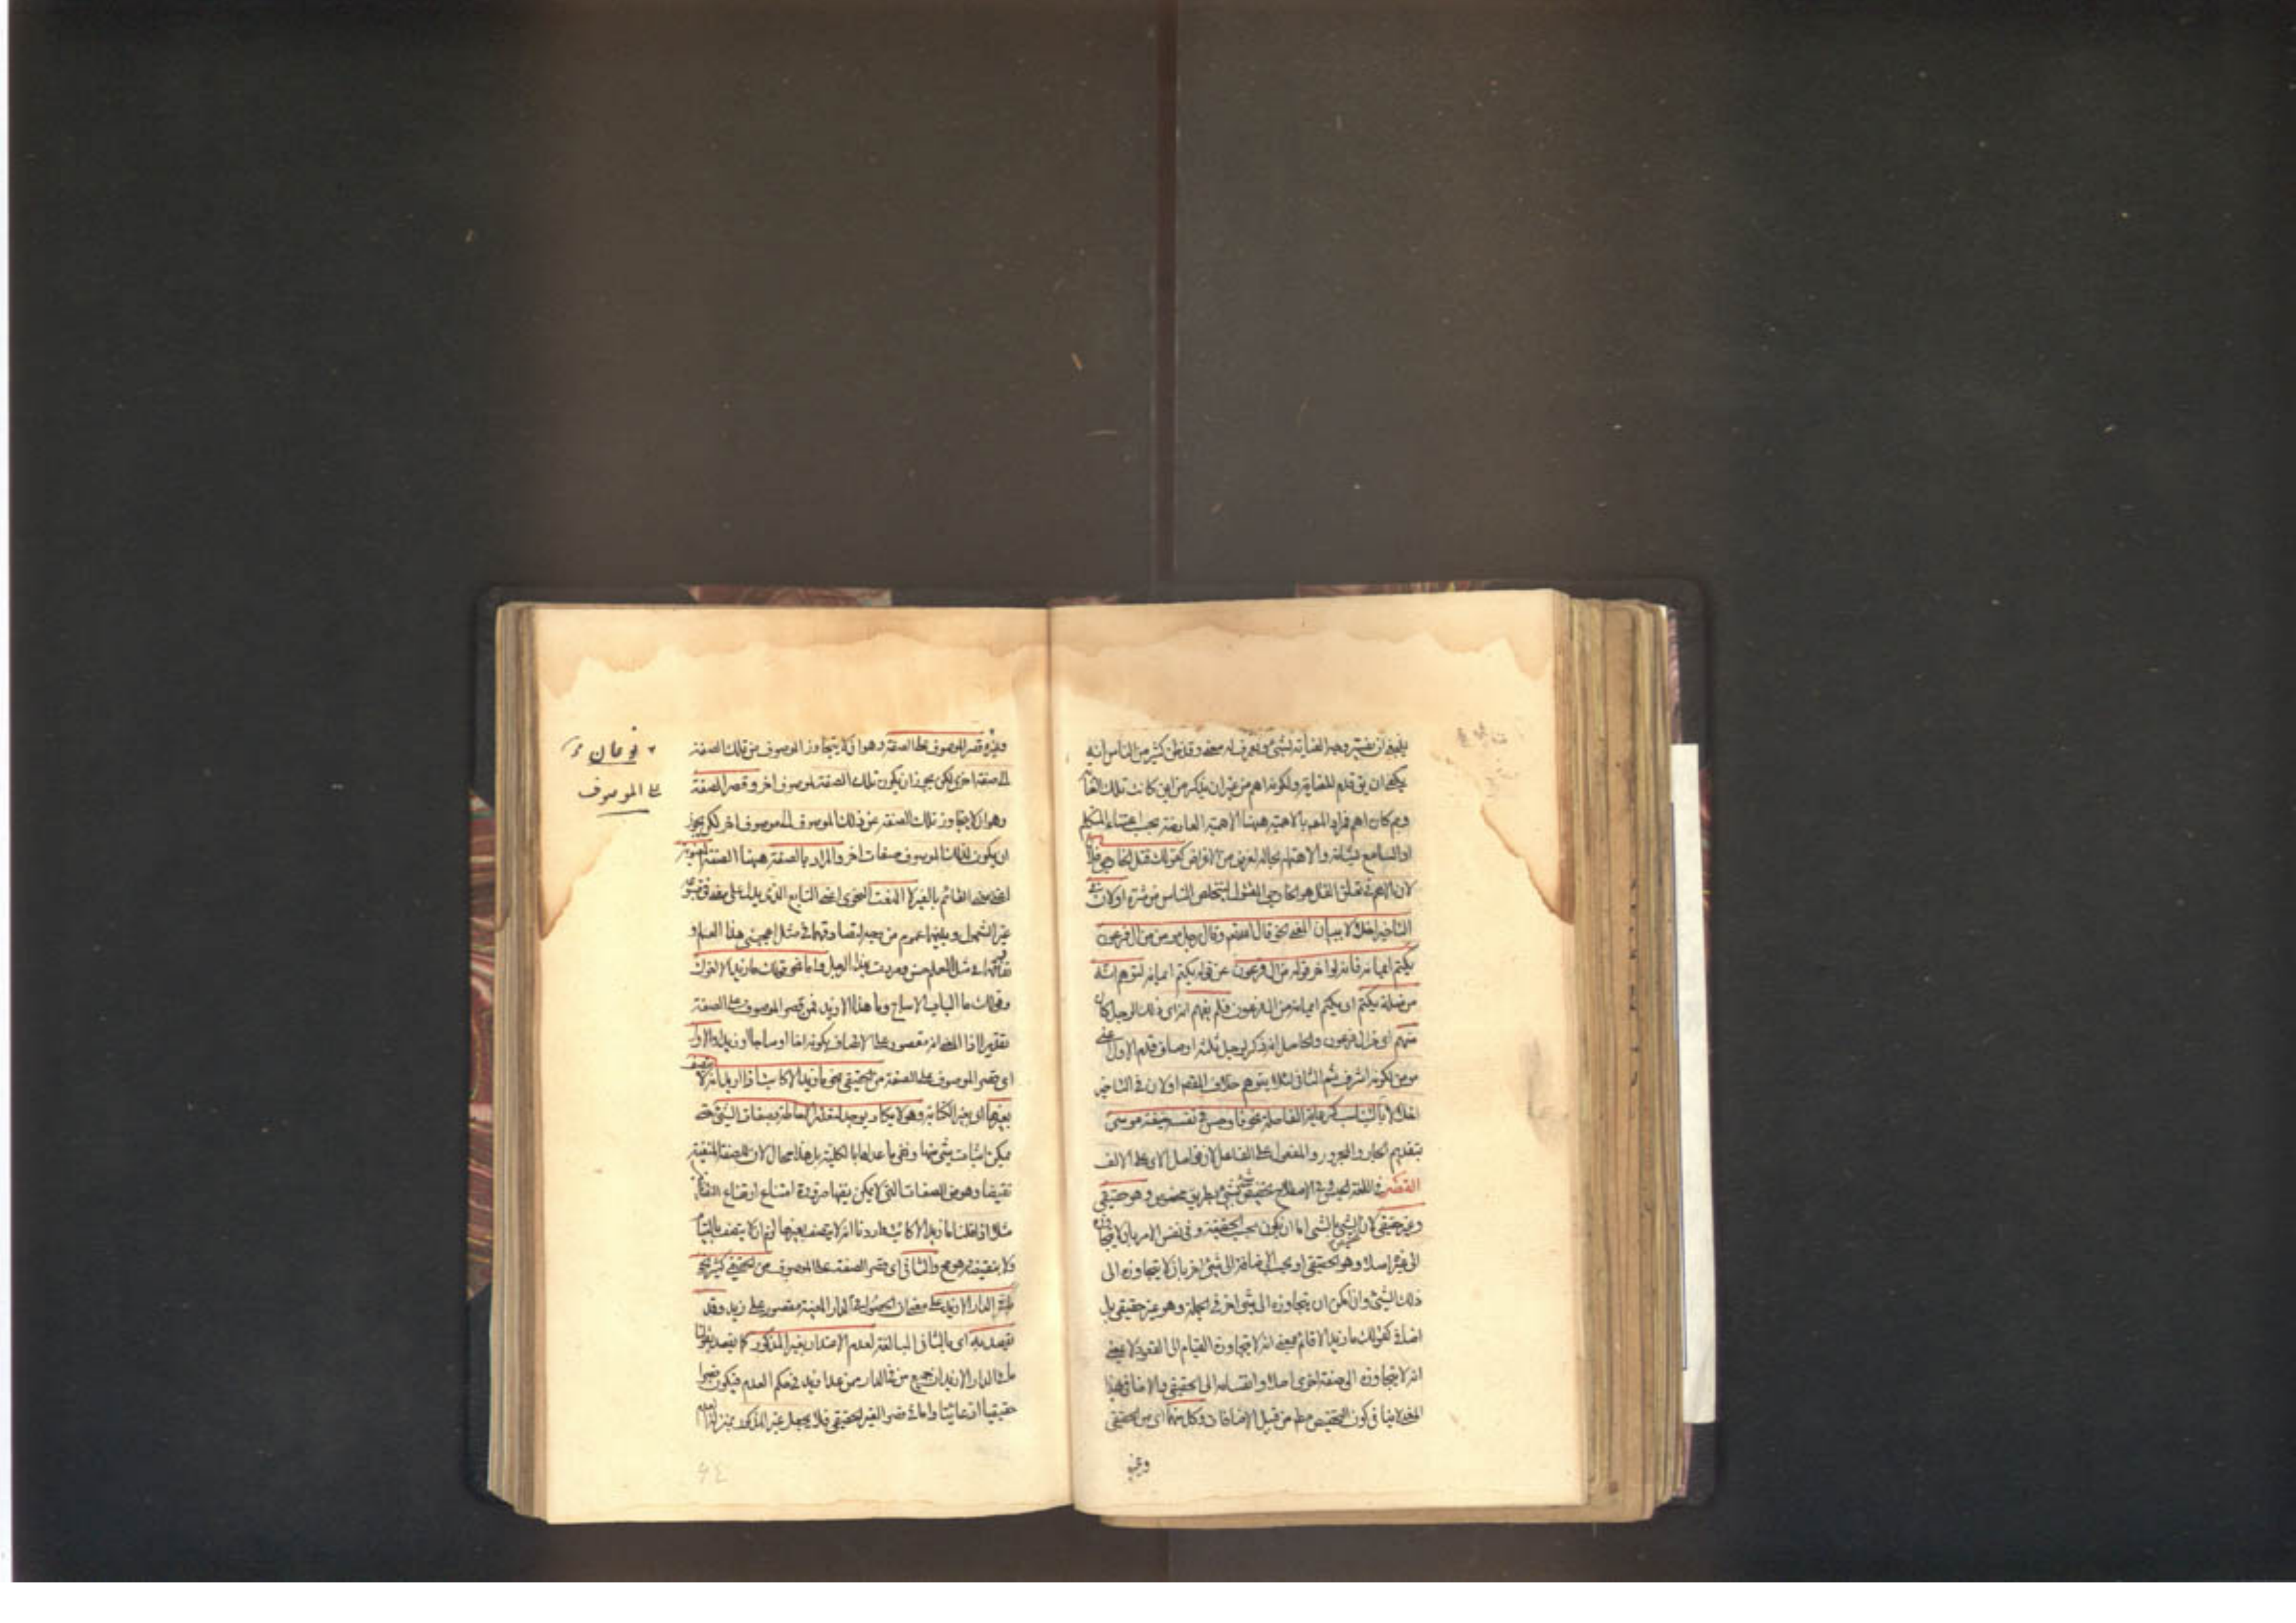 ينبغي ان يفسر وجه العناية بشيء ويعرف له معنى وقد ظن كثير من الناس انه
يكفي ان يق قدم للعناية ولكونه اهم من غير ان يذكر من اين كانت تلك العناية
وبم كان اهم فراد المصـ بالاهمية ههنا الاهمية العارضة بحسب اعتناء المتكلم
او السامع بشانه والاهتمام بحاله لغرض من الاغراض كقولك قتل الخارجي فلان
لان الاهم في تعلق القتل هو الخارجي المقتول ليتخلص الناس من شره او لان في
التاخير اخلالا ببيان المعنى نحو قال الله تعـ وقال رجل مومن من ال فرعون
يكتم ايمانه فانه لو اخر قوله من ال فرعون عن قوله يكتم ايمانه لتوهم انه
من صلة يكتم اي يكتم ايمانه من ال فرعون فلم يفهم انه اي ذلك الرجل كان
منهم اي من ال فرعون والحاصل انه ذكر لرجل ثلثة اوصاف قدم الاول اعني
مومن لكونه اشرف ثم الثاني لئلا يتوهم خلاف المقصـ او لان في التاخير
اخلالا بالتناسب كرعاية الفاصلة نحو فاوجس في نفسه خيفة موسى
بتقديم الجار والمجرور والمفعول على الفاعل لان فواصل الاي على الالف
القصر في اللغة الحبس وفي الاصطلاح تخصيص شيء بشيء بطريق مخصوص وهو حقيقي
وغير حقيقي لان تخصيص الشيء بالشيء اما ان يكون بحسب الحقيقة وفي نفس الامر بان لا يتجاوزه
الى غيره اصلا وهو الحقيقي او بحسب الاضافة الى شيء اخر بان لا يتجاوزه الى
ذلك الشيء وان امكن ان يتجاوزه الى شيء اخر في الجملة وهو غير حقيقي بل
اضافي كقولك ما زيد الا قائم بمعنى انه لا يتجاوز القيام الى القعود لا بمعنى
انه لا يتجاوزه الى صفة اخرى اصلا وانقسامه الى الحقيقي والاضافي بهذا
المعنى لا ينافي كون التخصيص مطـ من قبيل الاضافات وكل منهما اي من الحقيقي
وغير
وغيره قصر الموصوف على الصفة وهو ان لا يتجاوز الموصوف من تلك الصفة
الى صفة اخرى لكن يجوز ان يكون تلك الصفة لموصوف اخر وقصر الصفة
وهو ان لا يتجاوز تلك الصفة عن ذلك الموصوف الى موصوف اخر لكن يجوز
ان يكون لذلك الموصوف صفات اخر والمراد بالصفة ههنا الصفة المعنوية
اعني معنى القائم بالغير لا النعت النحوي اعني التابع الذي يدل على معنى في متبوعه
غير الشمول وبينهما عموم من وجه لتصادقهما في مثل اعجبني هذا العلم و
تفارقهما في مثل العلم حسن ومررت بهذا الرجل واما نحو قولك ما زيد الا اخوك
وقولك ما الباب الا ساج وما هذا الا زيد فمن قصر الموصوف على الصفة
تقديرا اذ المعنى انه مقصور على الاتصاف بكونه اخا او ساجا او زيدا والاول
اي قصر الموصوف على الصفة من الحقيقي نحو ما زيد الا كاتب اذا اريد انه لا يتصف
بغيرها اي بغير الكتابة وهو لا يكاد يوجد لتعذر الاحاطة بصفات الشيء حتى
يمكن اثبات شيء منها ونفي ما عداها بالكلية بل هذا محال لان للصفة المنفية
نقيضا وهو من الصفات التي لا يمكن نفيها ضرورة امتناع ارتفاع النقيضين
مثلا اذا قلنا ما زيد الا كاتب واردنا انه لا يتصف بغيرها لزم ان لا يتصف بالقيام
ولا بنقيضه وهو مح والثاني اي قصر الصفة على الموصوف من الحقيقي كثير نحو
ما في الدار الا زيد على معنى ان الحصول في الدار المعينة مقصور على زيد وقد
يقصد به اي بالثاني المبالغة لعدم الاعتداد بغير المذكور كما يقصد بقولنا
ما في الدار الا زيد ان جميع من في الدار ممن عدا زيد في حكم العدم فيكون قصرا
حقيقيا ادعائيا واما في قصر الغير الحقيقي فلا يجعل غير المذكور بمنزلة العدم
نوعان
على الموصوف